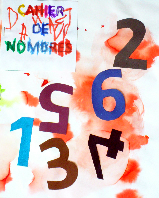 CAHIER
DE
NOMBRES
2
6
5
1
4
3